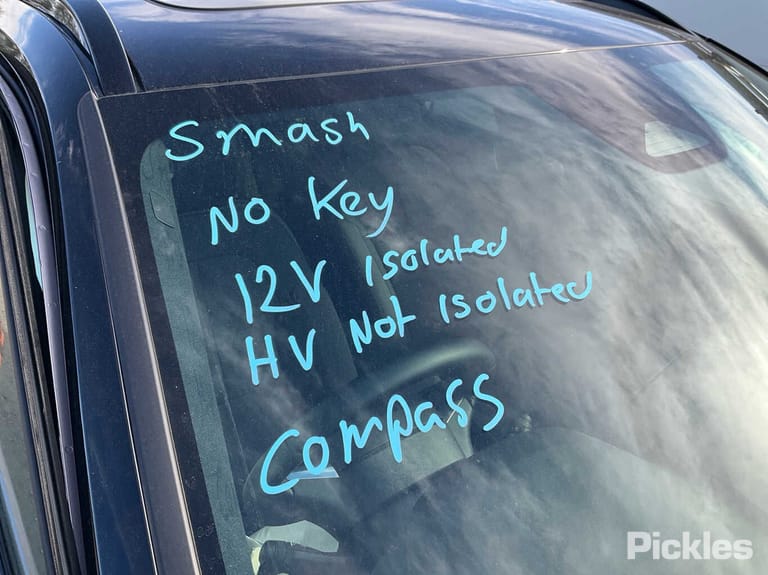 Smash
No Key
12V Isolated
HV Not Isolated
Compass
Pickles